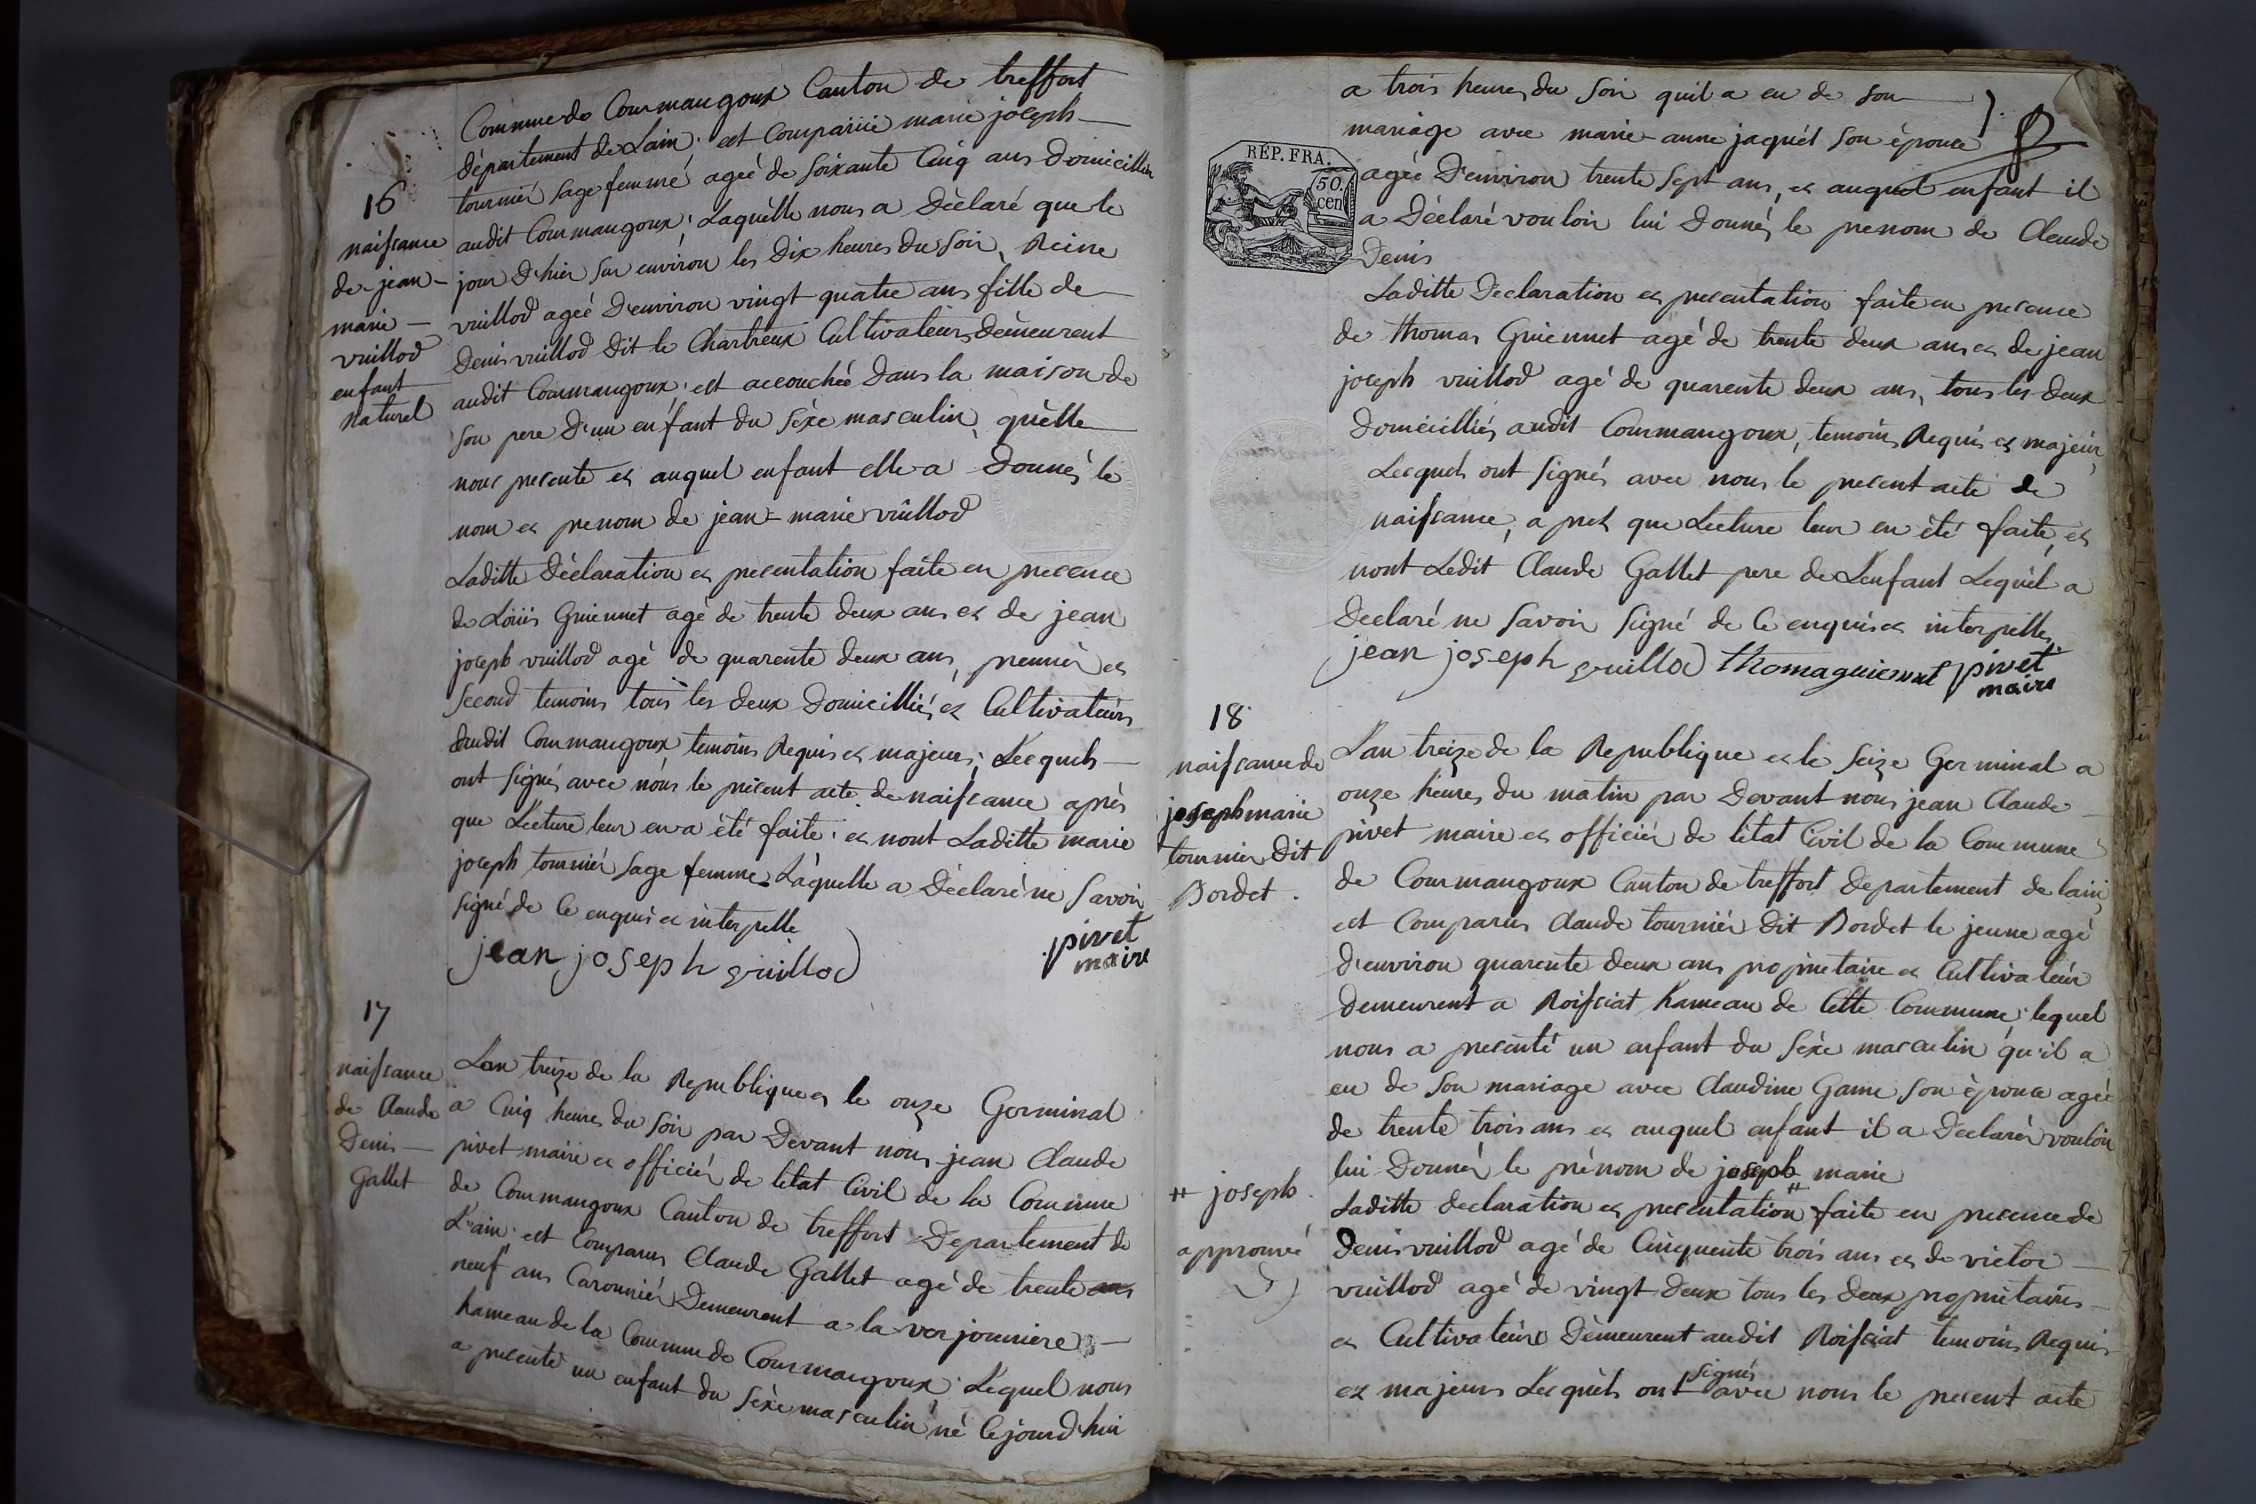 Commune de Courmangoux Canton de treffort
département de Lain; est Comparüe marie joseph
tournier sage femme agée de soixante Cinq ans domiciliée
audit Courmangoux; Laquèlle nous a Dèclaré que le
jour d'hier sur environ les Dix heures du soir, Reine
vuillod ageé D'environ vingt quatre ans fille de
Denis vuillod dit le Chartreux Cultivateur, Dèmeurent
audit Courmangoux; est accouchée Dans la maison de
son pere D'un enfant du sèxe masculin, quèlle
nous presente et auquel enfant elle a Donnés le
nom et prenom de jean-marie vuillod
Laditte Dèclaration et presentation faite en presence
de Löüis Guiennet agé de trente deux ans et de jean
joseph vuillod agé de quarente deux ans, premier et
second temoins tous les deux Domiciliiés et Cultivateurs
audit Courmangoux temoins Requis et majeurs; Lesquels
ont signés avec nous le présent acte de naissance après
que Lecture leur en a été faite; et nont Laditte marie
joseph tournier sage femme, Làquelle a Dèclaré ne savoir
signé de Ce enquis et interpelle
jean joseph vuillod
pivet
maire
16
naissance
de jean-
marie
vuillod
enfant
naturel
17
naissance
de Claude
Denis
Gallet
L'an treize de la Republique et le onze Germinal
a Cinq heures du soir par Devant nous jean Claude
pivet maire et officier de letat Civil de la Commune
de Courmangoux Canton de treffort Departement de
L'ain; est Comparus Claude Gallet agé de trente
neuf ans Caronnier, Demeurent a la verjonniere
hameau de la Commune de Courmangoux; Lequel nous
a presenté un enfant du sèxe masculin né Cejourd'hui
a trois heures du soir quil a eu de son
mariage avec marie-anne jaquet son èpouse
agée D'environ trente sept ans, et auquel enfant il
a Dèclaré vouloir lui Donnés le prenom de Claude
Denis
RÉP. FRA.
50.
cen
Laditte Declaration et presentation faite en presence
de thomas Guiennet agé de trente deux ans et de jean
joseph vuillod agé de quarente deux ans, tous les deux
Domiciliiés audit Courmangoux, temoins Requis et majeur,
Lesquels ont signés avec nous le present acte de
naissance, a pres que Lecture leur en été faite, et
nont Ledit Claude Gallet pere de L'enfant Lequèl a
Declaré ne savoir signé de Ce enquis et interpelle,
jean joseph vuillod thomaguiennet pivet
maire
18
naissance de
joseph marie
tournier dit
Bordet.
L'an treize de la Republique et le seize Germinal a
onze heures du matin par Devant nous jean Claude
pivet maire et officier de létat Civil de la Commune
de Courmangoux Canton de treffort département de lain,
est Comparus Claude tournier dit Bordet le jeune agé
d'environ quarente deux ans proprietaire et Cultivateur
demeurent a Roissiat hameau de Cette Commune; lequel
nous a presenté un enfant du sèxe masculin qu'il a
eu de son mariage avec Claudine Game son èpouse agée
de trente trois ans et auquel enfant il a Declarés vouloir
lui Donnés le prénom de joseph marie
# joseph
approuvé
Laditte declaration et presentation faite en presence de
Denis vuillod agé de Cinquente trois ans et de victor
vuillod agé de vingt deux tous les deux proprietaires
et Cultivateurs Dèmeurent audit Roissiat temoins Requis
et majeurs Lesquèls ont signés avec nous le present acte